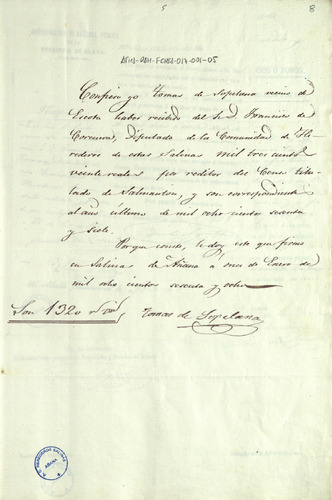 5
8
ATHA-DAH-FCHSA-017-001-05
Confieso yo Tomas de Sopelana vecino de
Escota haber recibido del Sr. D. Francisco de
Corcuera, Diputado de la Comunidad de He-
rederos de estas Salinas mil tres cientos
veinte reales por reditos del Censo titu-
lado de Salmanton, y son correspondientes
al año último de mil ocho cientos sesenta
y siete.
Para que conste, le doy este que firmo
en Salinas de Añana a once de Enero de
mil ocho cientos sesenta y ocho
Son 1320 rs. vn.
Tomas de Sopelana
HEREDEROS SALINAS
AÑANA